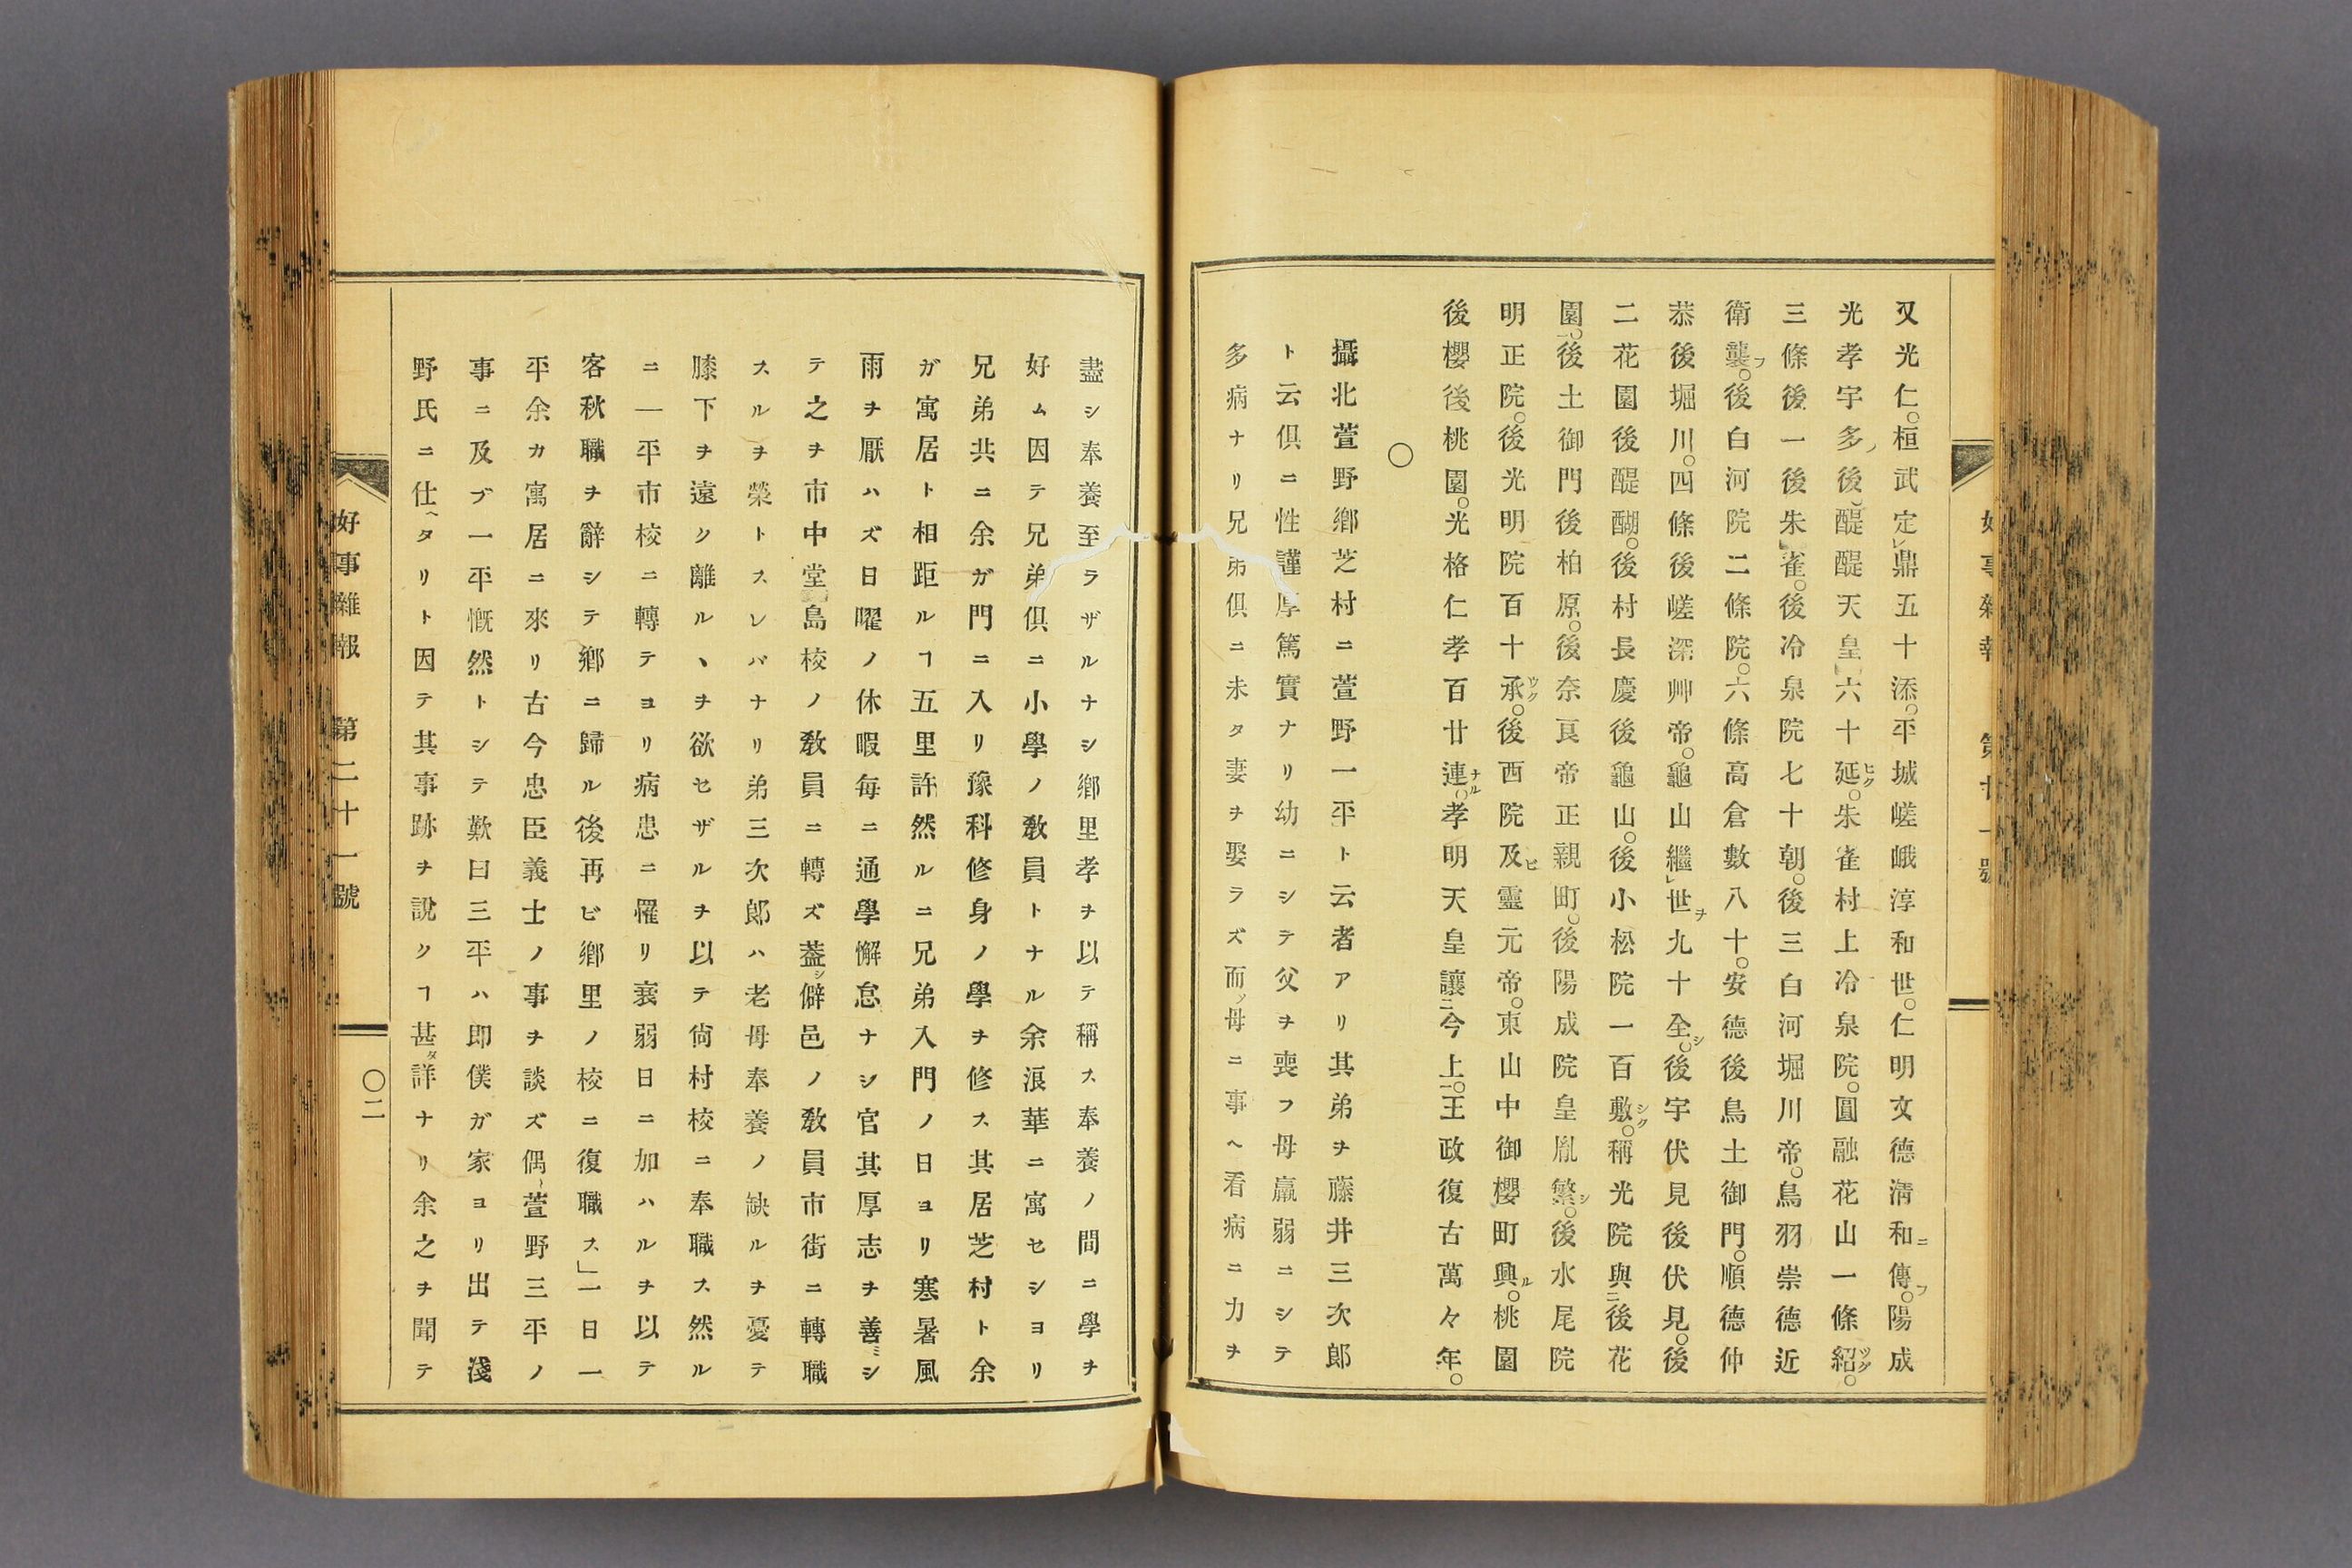 又光仁。桓武定レ鼎五十添。平城嵯峨淳和世。仁明文德淸和ニ傳フ。陽成
光孝宇多ノ後。醍醐天皇六十延ヒク。朱雀村上冷泉院。圓融花山一條紹ツグ。
三條後一後朱雀。後冷泉院七十朝。後三白河堀川帝。鳥羽崇德近
衛襲フ。後白河院二條院。六條高倉數八十。安德後鳥土御門。順德仲
恭後堀川。四條後嵯深艸帝。龜山繼レ世ヲ九十全シ。後宇伏見後伏見。後
二花園後醍醐。後村長慶後龜山。後小松院一百敷シク。稱光院與ニ後花
園。後土御門後柏原。後奈良帝正親町。後陽成院皇胤繁シ。後水尾院
明正院。後光明院百十承ツグ。後西院及ビ靈元帝。東山中御櫻町興ル。桃園
後櫻後桃園。光格仁孝百廿連ナル。孝明天皇讓ニ今上。王政復古萬々年。
○
攝北萱野鄕芝村ニ萱野一平ト云者アリ其弟ヲ藤井三次郎
ト云俱ニ性謹厚篤實ナリ幼ニシテ父ヲ喪フ母羸弱ニシテ
多病ナリ兄弟俱ニ未タ妻ヲ娶ラズ而ノ母ニ事ヘ看病ニ力ヲ
盡シ奉養至ラザルナシ鄕里孝ヲ以テ稱ス奉養ノ間ニ學ヲ
好ム因テ兄弟俱ニ小學ノ敎員トナル余浪華ニ寓セシヨリ
兄弟共ニ余ガ門ニ入リ豫科修身ノ學ヲ修ス其居芝村ト余
ガ寓居ト相距ルヿ五里許然ルニ兄弟入門ノ日ヨリ寒暑風
雨ヲ厭ハズ日曜ノ休暇每ニ通學懈怠ナシ官其厚志ヲ善ミシ
テ之ヲ市中堂島校ノ敎員ニ轉ズ蓋シ僻邑ノ敎員市街ニ轉職
スルヲ榮トスレバナリ弟三次郎ハ老母奉養ノ缺ルヲ憂テ
膝下ヲ遠ク離ルヽヲ欲セザルヲ以テ尙村校ニ奉職ス然ル
ニ一平市校ニ轉テヨリ病患ニ罹リ衰弱日ニ加ハルヲ以テ
客秋職ヲ辭シテ鄕ニ歸ル後再ビ鄕里ノ校ニ復職ス」一日一
平余カ寓居ニ來リ古今忠臣義士ノ事ヲ談ズ偶〻萱野三平ノ
事ニ及ブ一平慨然トシテ歎曰三平ハ卽僕ガ家ヨリ出テ淺
野氏ニ仕ヘタリト因テ其事跡ヲ說クヿ甚タ詳ナリ余之ヲ聞テ
好事雜報　第二十一號
〇二